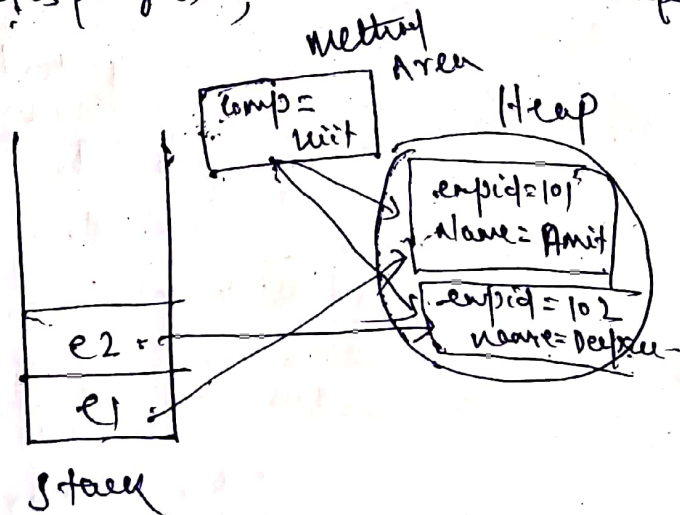 Method
Area
comp =
niit
Heap
empid=101
Name= Amit
empid=102
name=Deepa
e2
e1
Stack